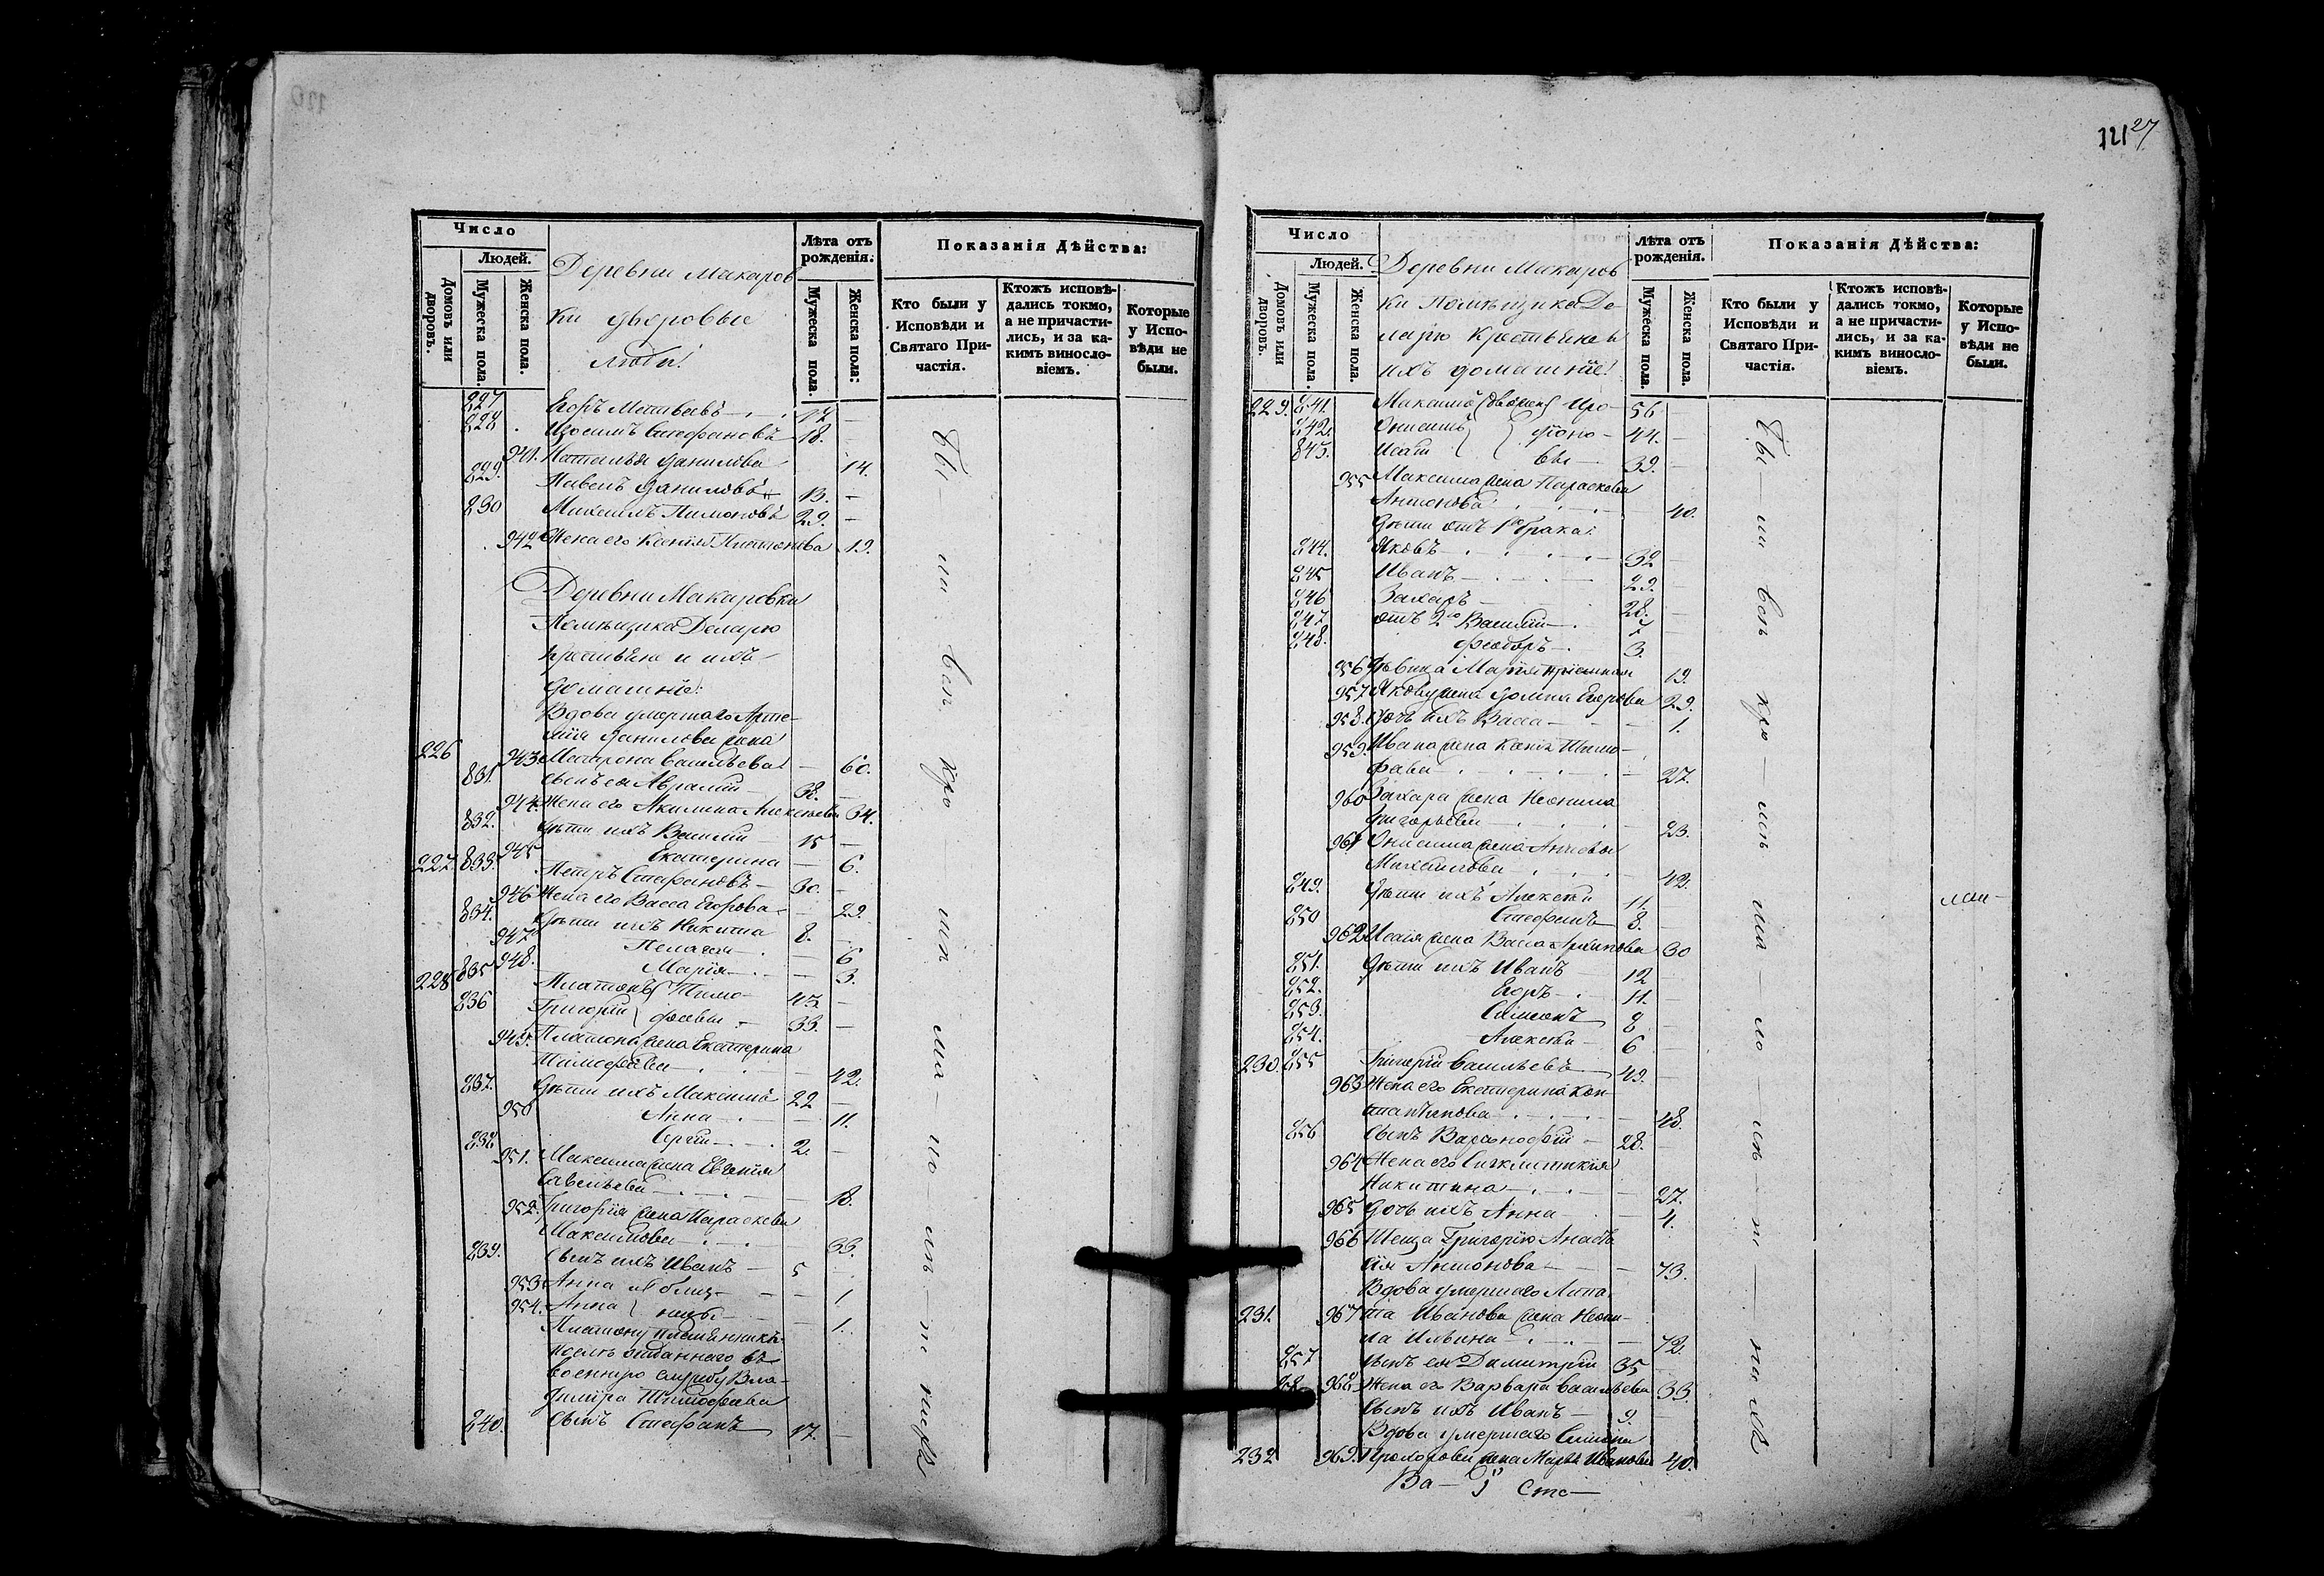 Число
Людей.
Домовъ или дворовъ.
Мужеска пола.
Женска пола.
Деревни Макаров
ки дворовые
люди:
Лѣта отъ рожденія.
Мужеска пола.
Женска пола.
Показанія Дѣйства:
Кто были у Исповѣди и Святаго Причастія.
Ктожъ исповѣдались токмо, а не причастились, и за какимъ винословіемъ.
Которые у Исповѣди не были.
827 Егоръ Матвеевъ 17 —
828 Изосимъ Стефановъ 18. —
941. Наталья Данилова — 14.
829. Павелъ Даниловъ 13. —
830 Михаилъ Пимоновъ 29. —
942 Жена его Ксенія Платонова 19.
Деревни Макаровки
Помѣщика Деларю
крестьяне и ихъ
домашніе:
Вдова умершаго Арте-
мія Данилова жена
226 943 Матрона Васильева — 60.
831. Сынъ ея Авраамій 38. —
944. Жена его Акилина Алексѣева 34.
832. Дѣти ихъ Василій 15 —
945 Екатерина — 6.
227. 833. Петръ Стефановъ 30. —
946 Жена его Васса Егорова — 29.
834. Дѣти ихъ Никита 8. —
947 Пелагея — 6
948. Марія — 3.
228 835 Платонъ Тимо- 43 —
836 Григорій фѣевы 33. —
949. Платона жена Екатерина
Тимофѣева — 42.
837. Дѣти ихъ Максимъ 22 —
950 Анна — 11.
838 Сергій 2. —
951. Максима жена Евгенія
Савельева — 18.
952. Григорія жена Параскева
Максимова — 33.
839. Сынъ ихъ Иванъ 5 —
953 Анна близ- — 1.
954. Анна нецы — 1.
Платону племянникъ
отданнаго въ
военную службу Вла-
димира Тимофѣева
840. сынъ Стефанъ 17. —
121 27
Число
Людей.
Домовъ или дворовъ.
Мужеска пола.
Женска пола.
Деревни Макаров
ки Помѣщика Де
ларю крестьяне и
ихъ домашніе:
Лѣта отъ рожденія.
Мужеска пола.
Женска пола.
Показанія Дѣйства:
Кто были у Исповѣди и Святаго Причастія.
Ктожъ исповѣдались токмо, а не причастились, и за какимъ винословіемъ.
Которые у Исповѣди не были.
229. 841. Максимъ 56 —
842. Онисимъ 44. —
843. Исаія 39. —
955 Максима жена Параскева
Антонова — 40.
Дѣти отъ 1го брака:
844. Яковъ 32 —
845 Иванъ 29. —
846 Захаръ 28. —
847 отъ 2го Василій 7 —
848. Феодоръ 3. —
956 Дѣвица Марія пріемная 19.
957. Якова жена Домна Егорова 29.
958. Дочь ихъ Васса — 1.
959. Ивана жена Ксенія Тимо-
фѣева — 27.
960 Захара жена Неонила
Григорьева — 23.
961 Онисима жена
Михайлова — 42.
849. Дѣти ихъ Алексѣй 11. —
850 Стефанъ 8. —
962 Исаія жена Васса Архипова 30
851. Дѣти ихъ Иванъ 12
852. Егоръ 11. —
853. Симеонъ 8 —
854. Алексѣй 6 —
230. 855 Григорій Васильевъ 49. —
963 Жена его Екатерина Кон-
стантинова — 48.
856 Сынъ Варсонофій 28. —
964 Жена его Синклитикія
Никитина — 27.
965 Дочь ихъ Анна — 4.
966 Теща Григорію Анаста
сія Антонова — 73.
Вдова умершаго Липа
231. 967 та Иванова жена Неони-
ла Ильина — 72.
857 сынъ ея Димитрій 35
968. Жена его Варвара Васильева 33.
858 Сынъ ихъ Иванъ 9. —
Вдова умершаго Симона
232 969. Прохорова жена Марѳа Иванова 40.